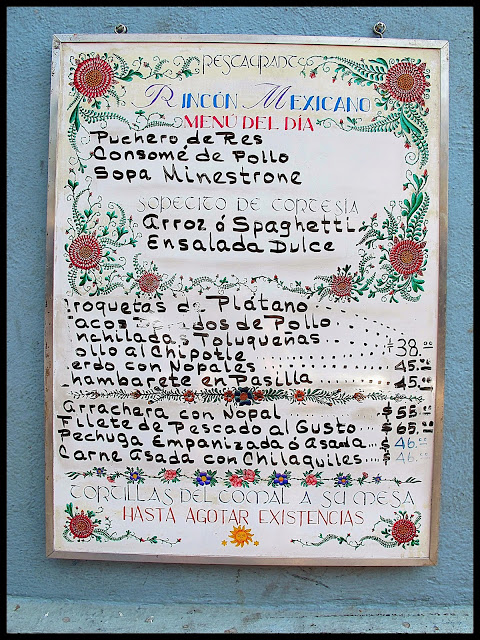 RESTAURANTE
RINCÓN MEXICANO
MENÚ DEL DÍA
Puchero de Res
Consome de Pollo
Sopa Minestrone
SOPECITO DE CORTESÍA
Arroz ó Spaghetti
Ensalada Dulce
roquetas de Plátano
acos dos de Pollo
nchiladas Toluqueñas
ollo al Chipotle 38.
erdo con Nopales 45.
hambarete en Pasilla 45.
Arrachera con Nopal $55.
Filete de Pescado al Gusto $65.
Pechuga Empanizada ó Asada $46.
Carne Asada con Chilaquiles $46.
TORTILLAS DEL COMAL A SU MESA
HASTA AGOTAR EXISTENCIAS